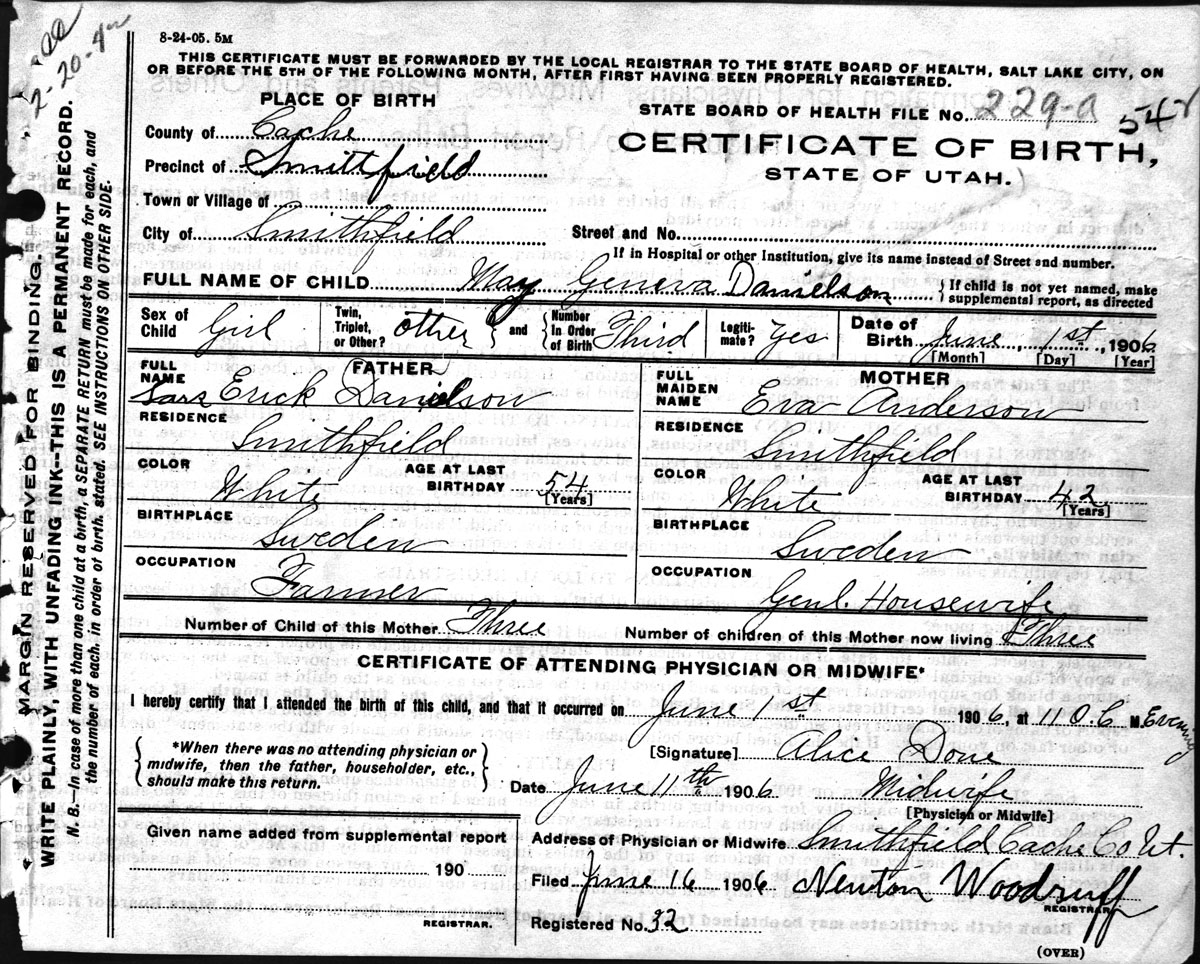 8-24-05. 5M
2-20-4
THIS CERTIFICATE MUST BE FORWARDED BY THE LOCAL REGISTRAR TO THE STATE BOARD OF HEALTH, SALT LAKE CITY, ON
OR BEFORE THE 5TH OF THE FOLLOWING MONTH, AFTER FIRST HAVING BEEN PROPERLY REGISTERED.
PLACE OF BIRTH
STATE BOARD OF HEALTH FILE NO. 229-a 542
County of Cache
CERTIFICATE OF BIRTH,
Precinct of Smithfield
STATE OF UTAH.
Town or Village of
City of Smithfield Street and No.
If in Hospital or other Institution, give its name instead of Street and number.
FULL NAME OF CHILD May Geneva Danielson { If child is not yet named, make
supplemental report, as directed
Sex of Child Girl Twin, Triplet, or Other? other and Number in Order of Birth Third Legitimate? yes Date of Birth June 1st, 1906
[Month] [Day] [Year]
FATHER
FULL NAME Lars Erick Danielson
RESIDENCE Smithfield
COLOR White AGE AT LAST BIRTHDAY 54 [Years]
BIRTHPLACE Sweden
OCCUPATION Farmer
MOTHER
FULL MAIDEN NAME Eva Anderson
RESIDENCE Smithfield
COLOR White AGE AT LAST BIRTHDAY 42 [Years]
BIRTHPLACE Sweden
OCCUPATION Genl. Housewife
Number of Child of this Mother Three Number of children of this Mother now living Three
CERTIFICATE OF ATTENDING PHYSICIAN OR MIDWIFE*
I hereby certify that I attended the birth of this child, and that it occurred on June 1st 1906, at 11 O.C. M. Evening
{ *When there was no attending physician or
midwife, then the father, householder, etc.,
should make this return. }
[Signature] Alice Done
Date June 11th 1906 Midwife
[Physician or Midwife]
Given name added from supplemental report
190
REGISTRAR.
Address of Physician or Midwife Smithfield Cache Co Ut.
Filed June 16 1906 Newton Woodruff
REGISTRAR.
Registered No. 32
(OVER)
MARGIN RESERVED FOR BINDING.
WRITE PLAINLY, WITH UNFADING INK--THIS IS A PERMANENT RECORD.
N. B.--In case of more than one child at a birth, a SEPARATE RETURN must be made for each, and
the number of each, in order of birth, stated. SEE INSTRUCTIONS ON OTHER SIDE.